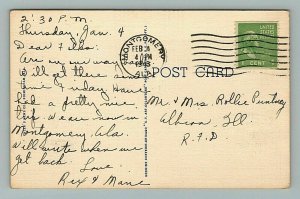 2:30 P.M.
Thursday, Jan. 4
Dear Folks:
Are on our way
Will get there some
time Friday. Have
had a pretty nice
trip. Were now in
Montgomery, Ala.
Will write when we
get back.
Love
Rex & Mane
MONTGOMERY
FEB 4
4 PM
1943
ALA.
POST CARD
CENT
Mr. & Mrs. Rollie
Albion Ill.
R.F.D